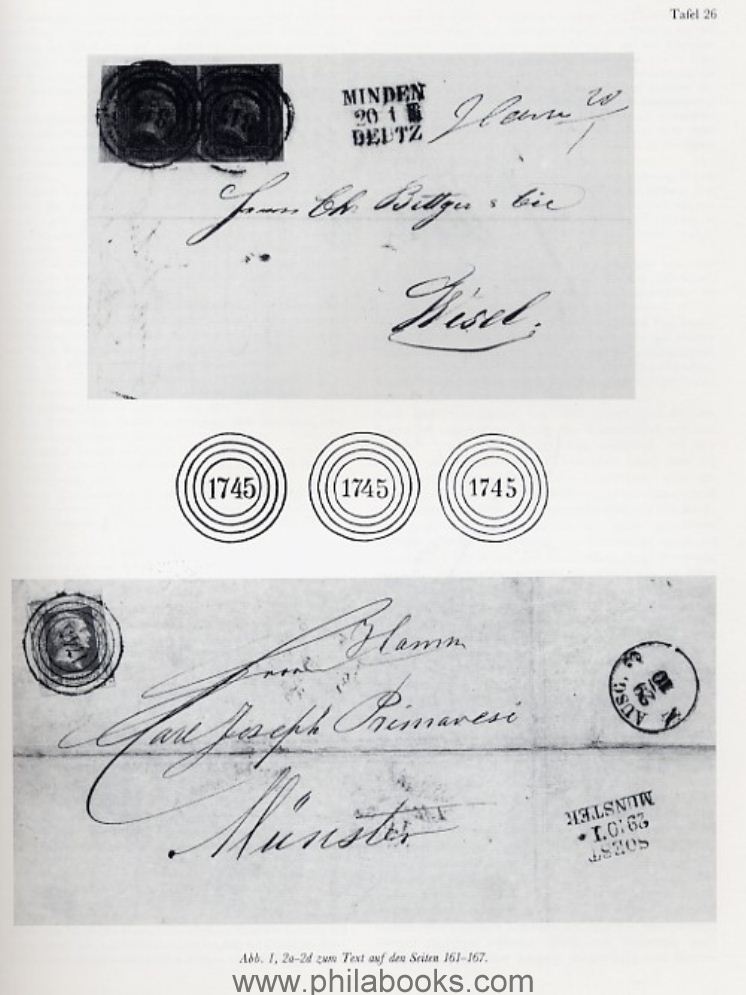 Tafel 26
MINDEN
20 1
DEUTZ
Hamm 20
1
Herrn Ch. Böttger & Cie
Wesel.
1745 1745 1745
Hamm
Herrn
Carl Joseph Primavesi
Münster
AUSG. 3
29 10
N
SOEST
29 10 I.
MÜNSTER
Abb. 1, 2a–2d zum Text auf den Seiten 161–167.
www.philabooks.com